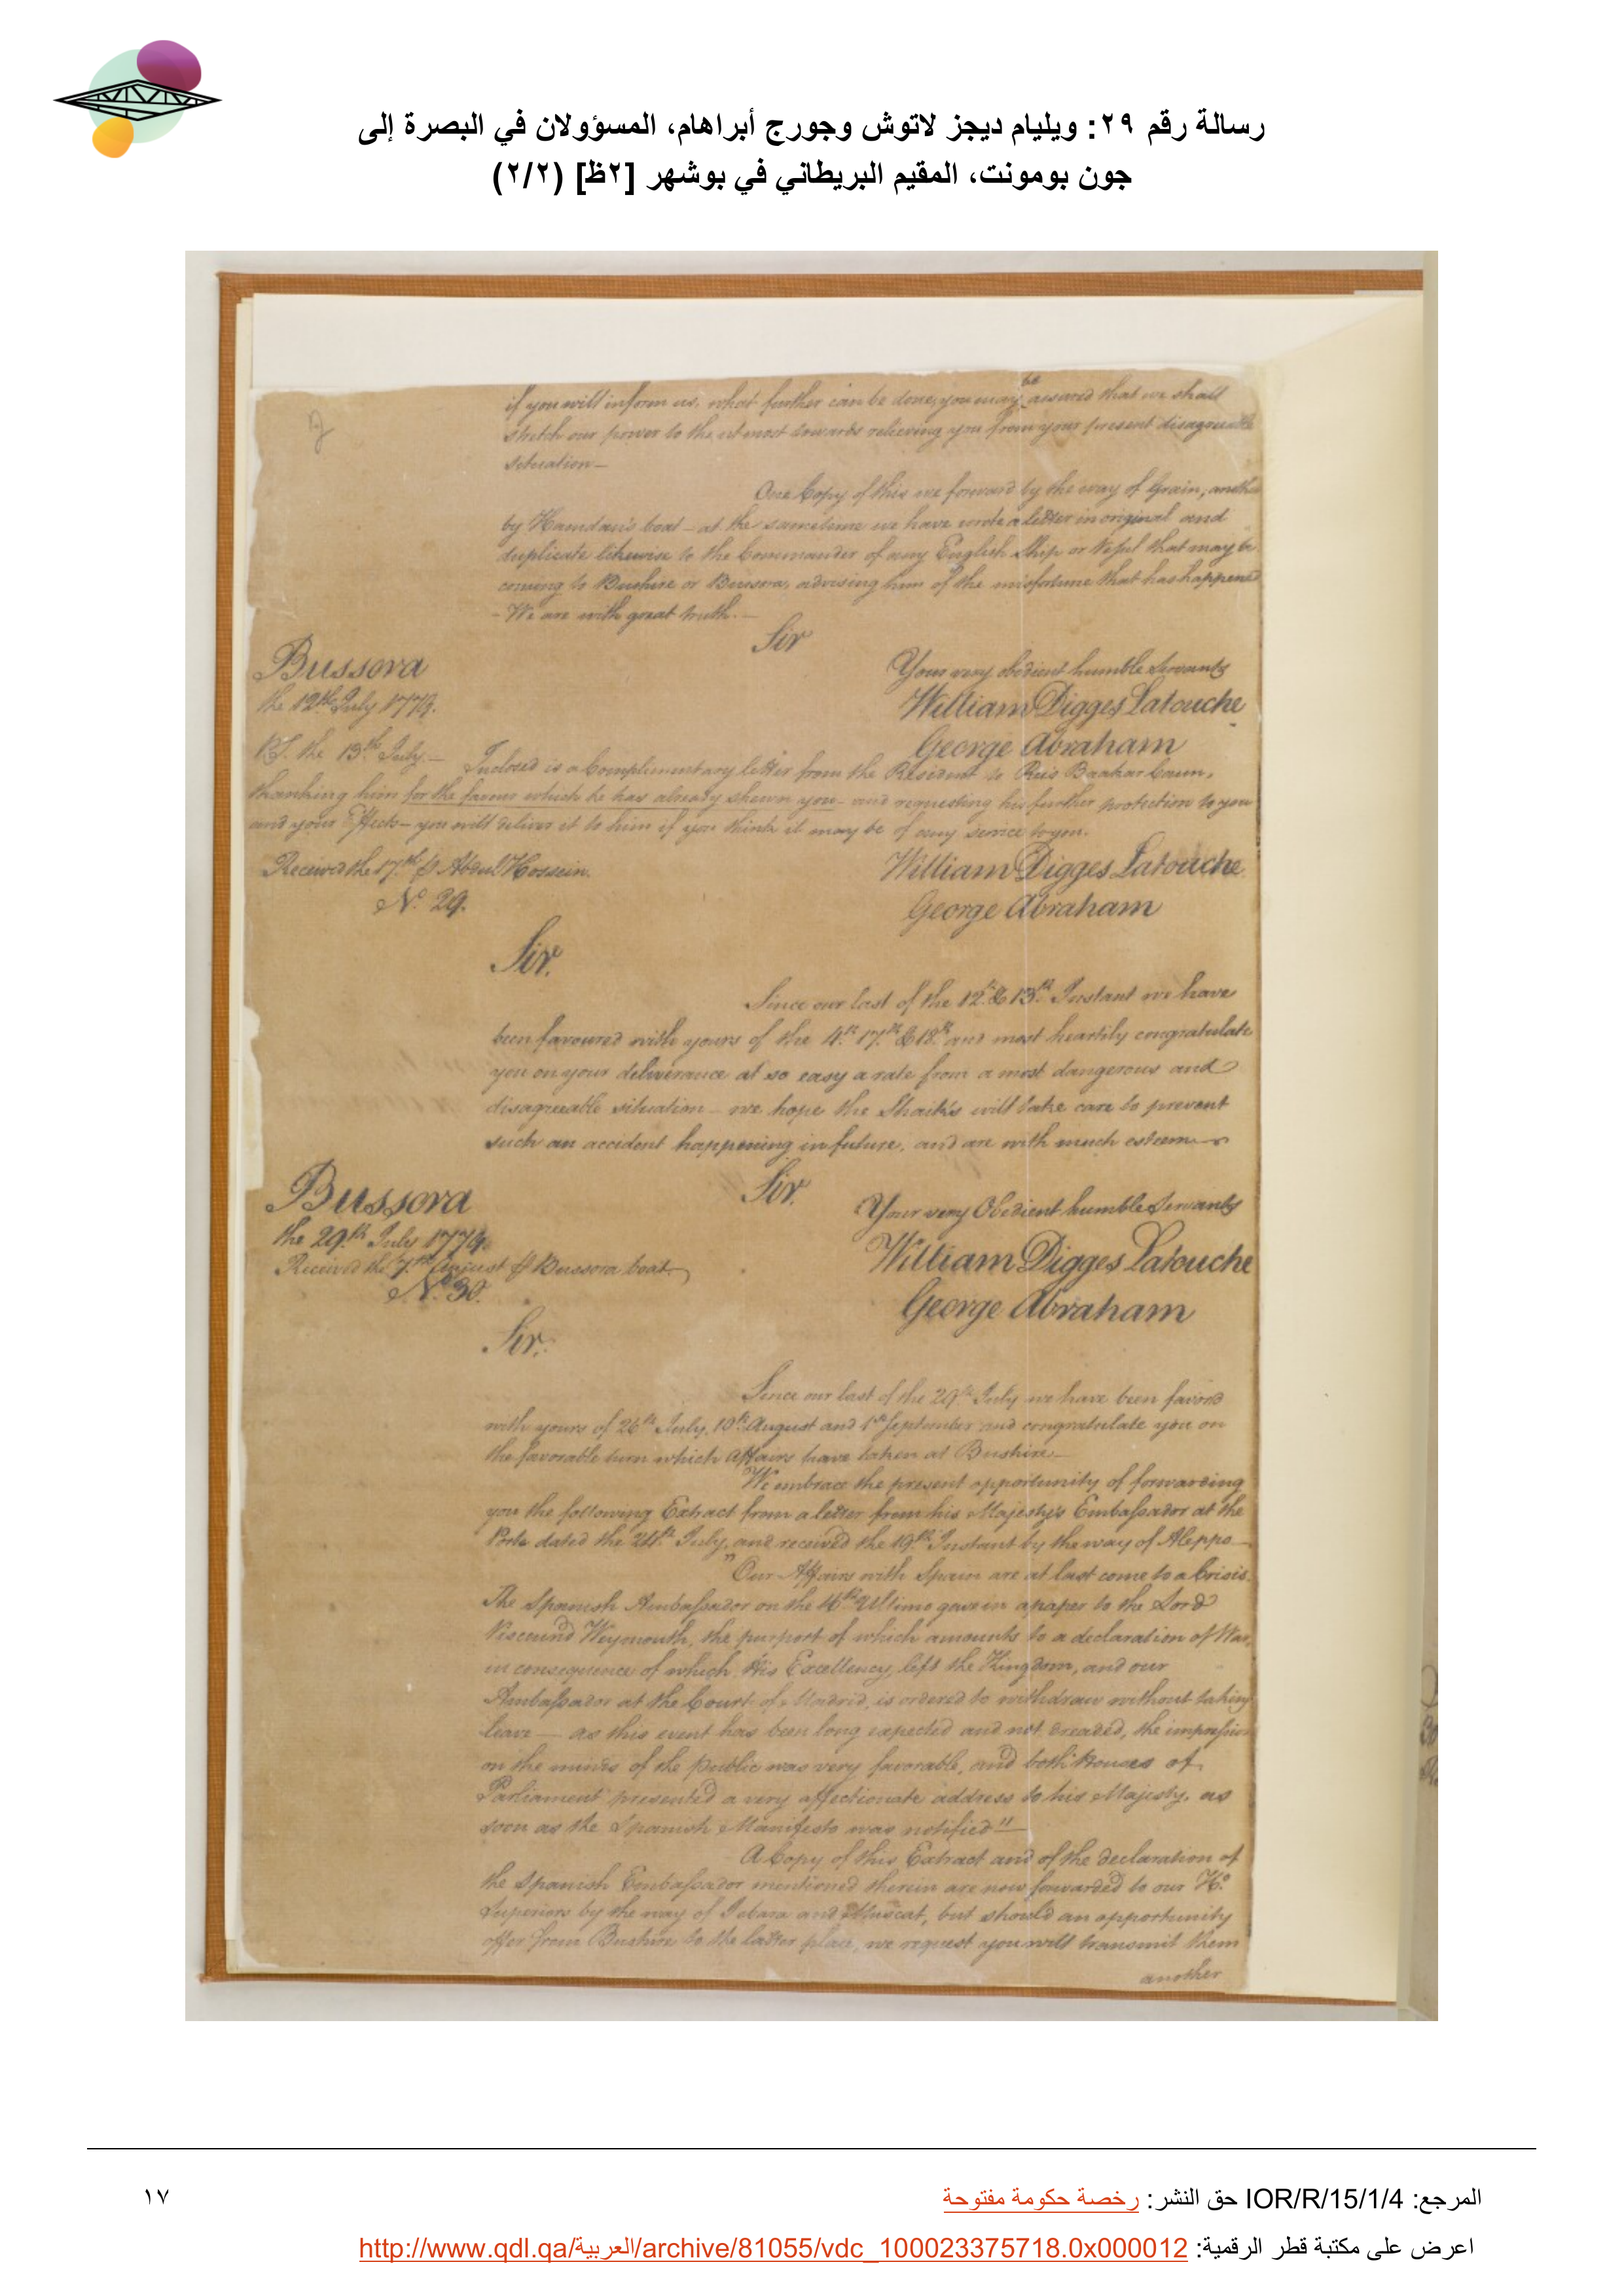 رسالة رقم ٢٩: ويليام ديجز لاتوش وجورج أبراهام، المسؤولان في البصرة إلى
جون بومونت، المقيم البريطاني في بوشهر [٢ظ] (٢/٢)
if you will inform us, what further can be done, you may be assured that we shall
stretch our power to the utmost towards relieving you from your present disagreeable
situation—
One Copy of this we forward by the way of Grain, another
by Hamdan's boat - at the same time we have wrote a letter in original and
duplicate likewise to the Commander of any English Ship or Vessel that may be
coming to Bushire or Bussora, advising him of the misfortune that has happened
- We are with great truth. —
Sir
Bussora
the 12th July 1779.
Your very obedient humble Servants
William Digges Latouche
George Abraham
P.S. the 13th July — Inclosed is a Complimentary letter from the Resident to Reis Baakar
thanking him for the favour which he has already shewn you - and requesting his further protection to you
and your Effects - you will deliver it to him if you think it may be of any service to you.
Received the 17th p Abdul Hossein.
William Digges Latouche
George Abraham
No. 29.
Sir.
Since our last of the 12th & 13th Instant we have
been favoured with yours of the 4th 17th & 18th and most heartily congratulate
you on your deliverance at so easy a rate from a most dangerous and
disagreeable situation — we hope the Shaik's will take care to prevent
such an accident happening in future, and are with much esteem
Sir.
Bussora
the 29th July 1779.
Your very Obedient humble Servants
William Digges Latouche
George Abraham
Received the 7th August p Bussora boat.
No. 30.
Sir.
Since our last of the 29th July we have been favord
with yours of 26th July, 19th August and 1st September and congratulate you on
the favorable turn which Affairs have taken at Bushire.—
We embrace the present opportunity of forwarding
you the following Extract from a letter from his Majesty's Embassador at the
Porte dated the 24th July, and received the 19th Instant by the way of Aleppo—
"Our Affairs with Spain are at last come to a Crisis.
The Spanish Ambassador on the 16th Ultimo gave in a paper to the Lord
Viscount Weymouth, the purport of which amounts to a declaration of War,
in consequence of which His Excellency left the Kingdom, and our
Ambassador at the Court of Madrid, is ordered to withdraw without taking
leave — as this event has been long expected and not dreaded, the impression
on the minds of the public was very favorable, and both Houses of
Parliament presented a very affectionate address to his Majesty, as
soon as the Spanish Manifesto was notified"—
A Copy of this Extract and of the declaration of
the Spanish Embassador mentioned therein are now forwarded to our Ho.
Superiors by the way of Zebara and Muscat, but should an opportunity
offer from Bushire to the latter place, we request you will transmit them
another
المرجع: IOR/R/15/1/4 حق النشر: رخصة حكومة مفتوحة
١٧
اعرض على مكتبة قطر الرقمية: http://www.qdl.qa/العربية/archive/81055/vdc_100023375718.0x000012